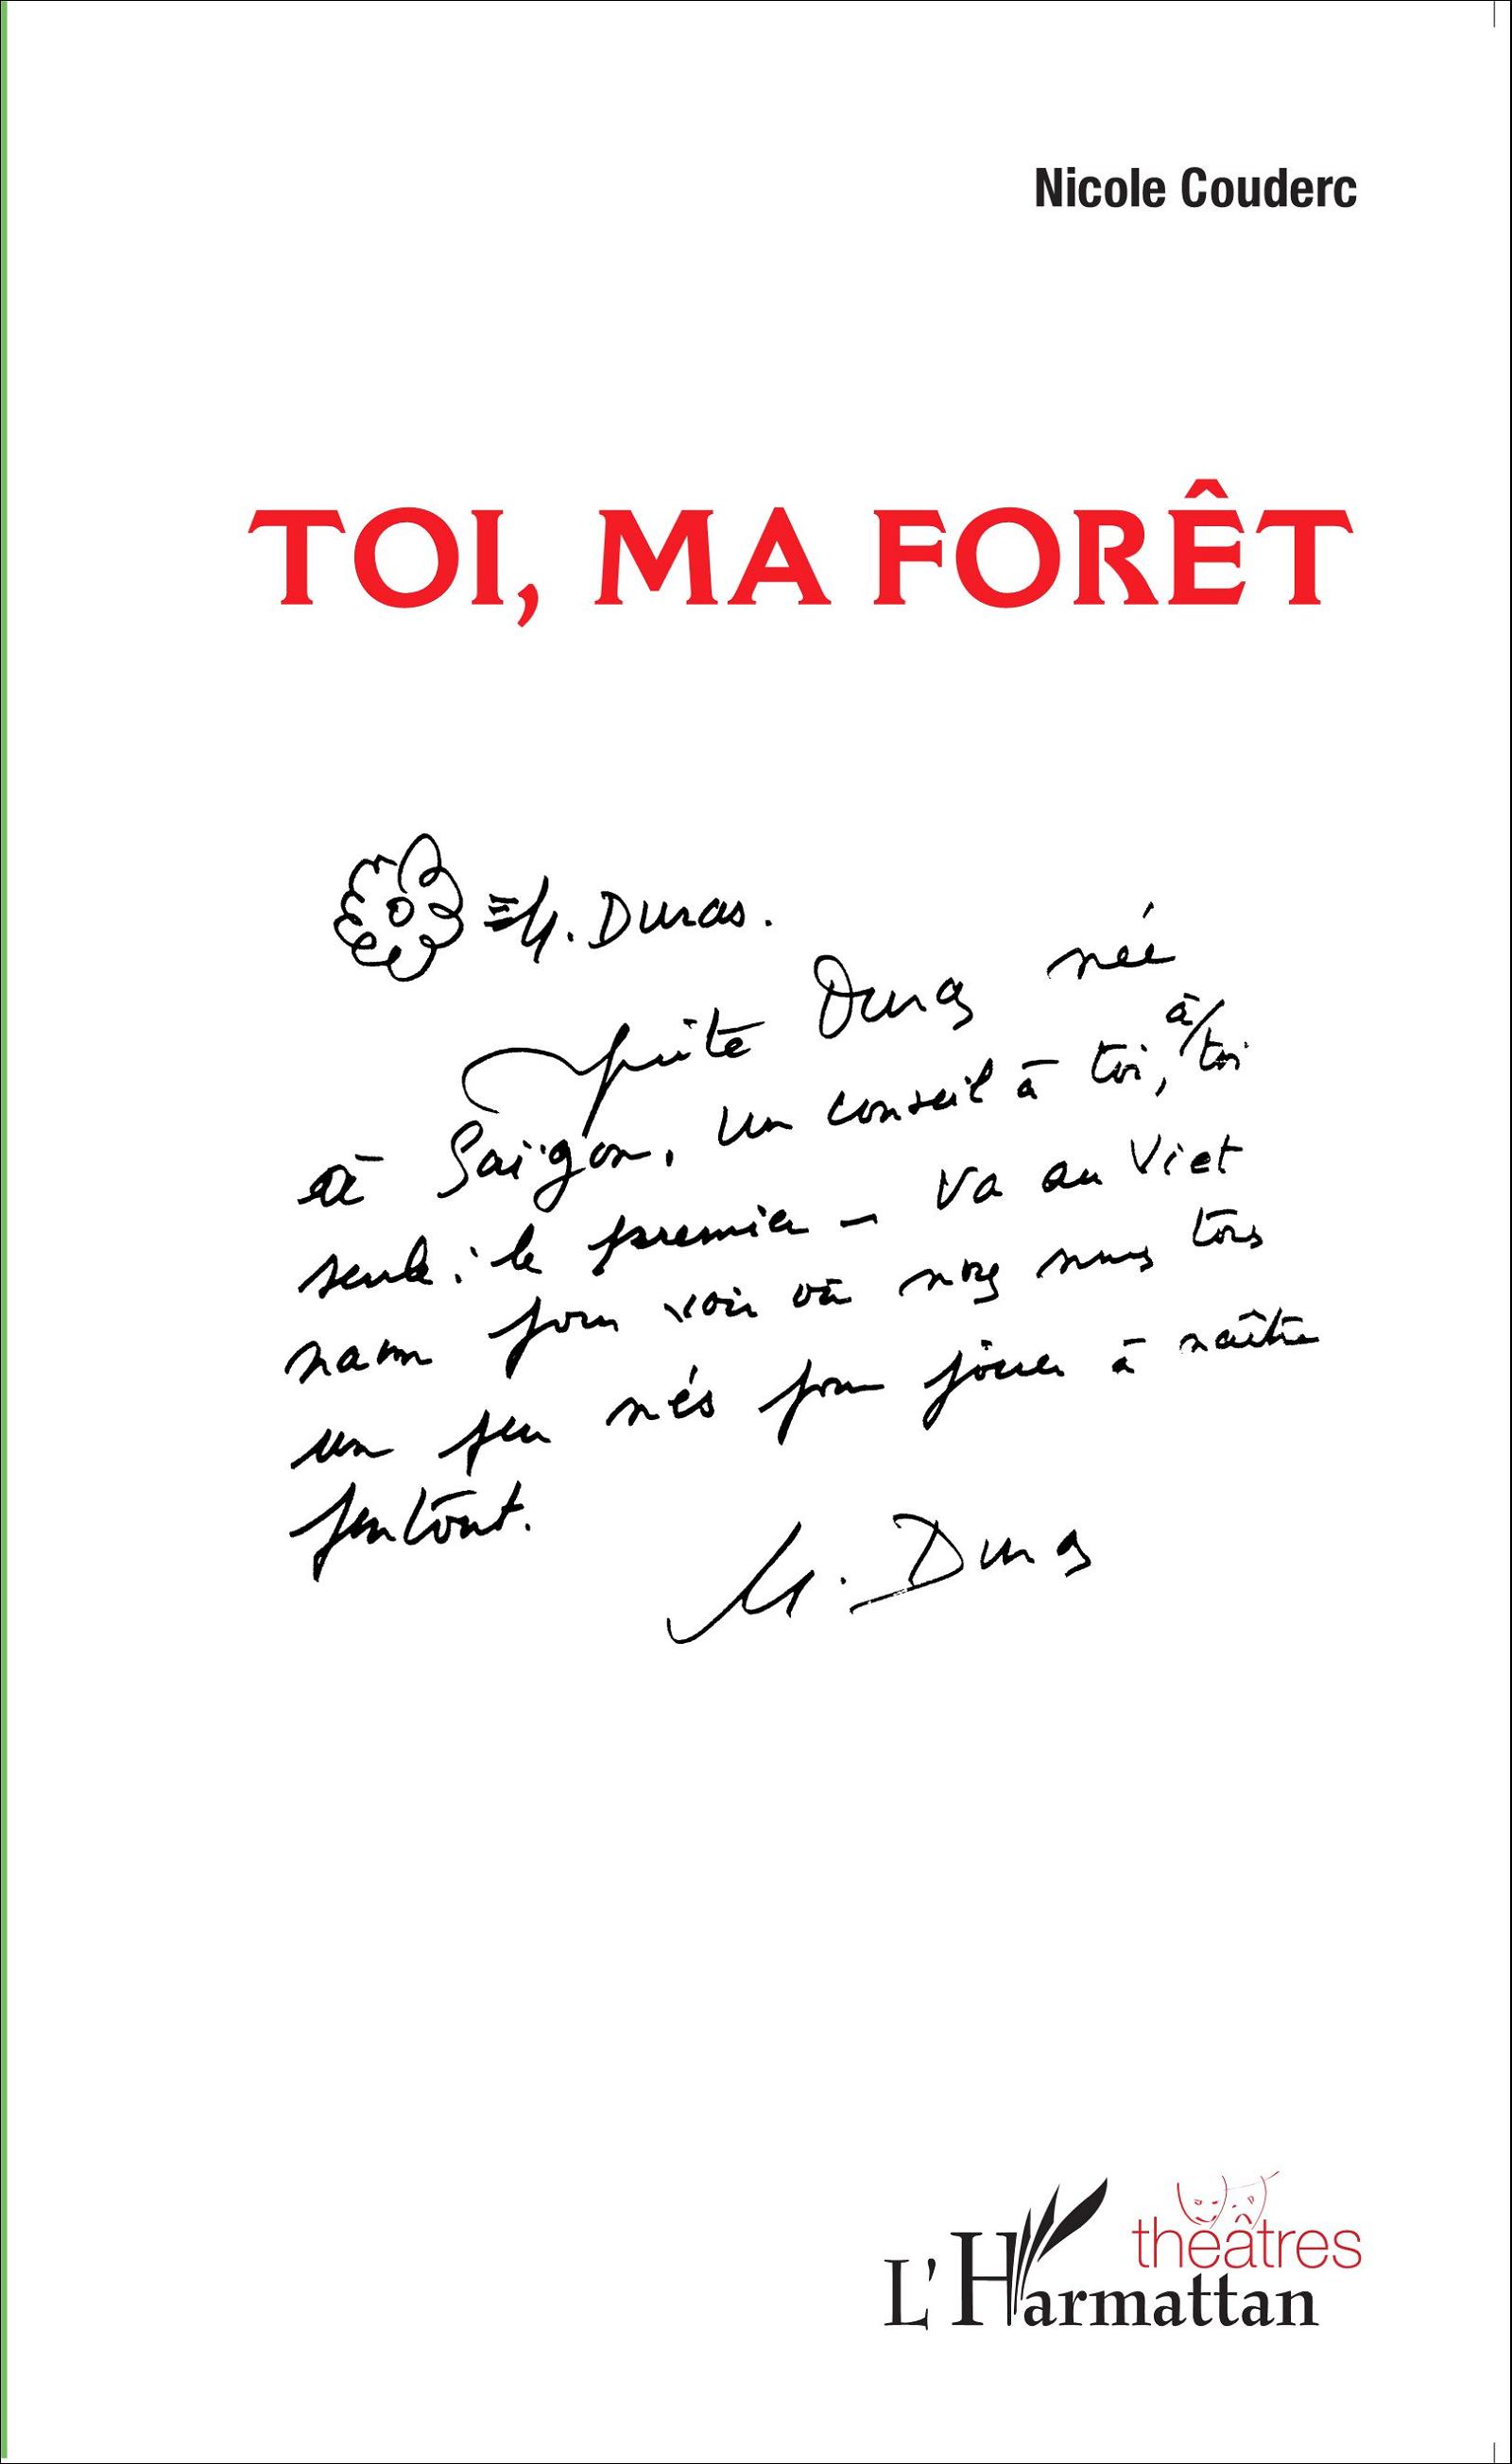 Nicole Couderc
TOI, MA FORÊT
M. Duras.
Duras née
à Saïgon. un conseil à toi, à/toi
seule : le premier – va au Viet
nam pour voir où nous tous
un peu nés pour jouer à naître
partout.
M. Duras
théâtres
L'Harmattan